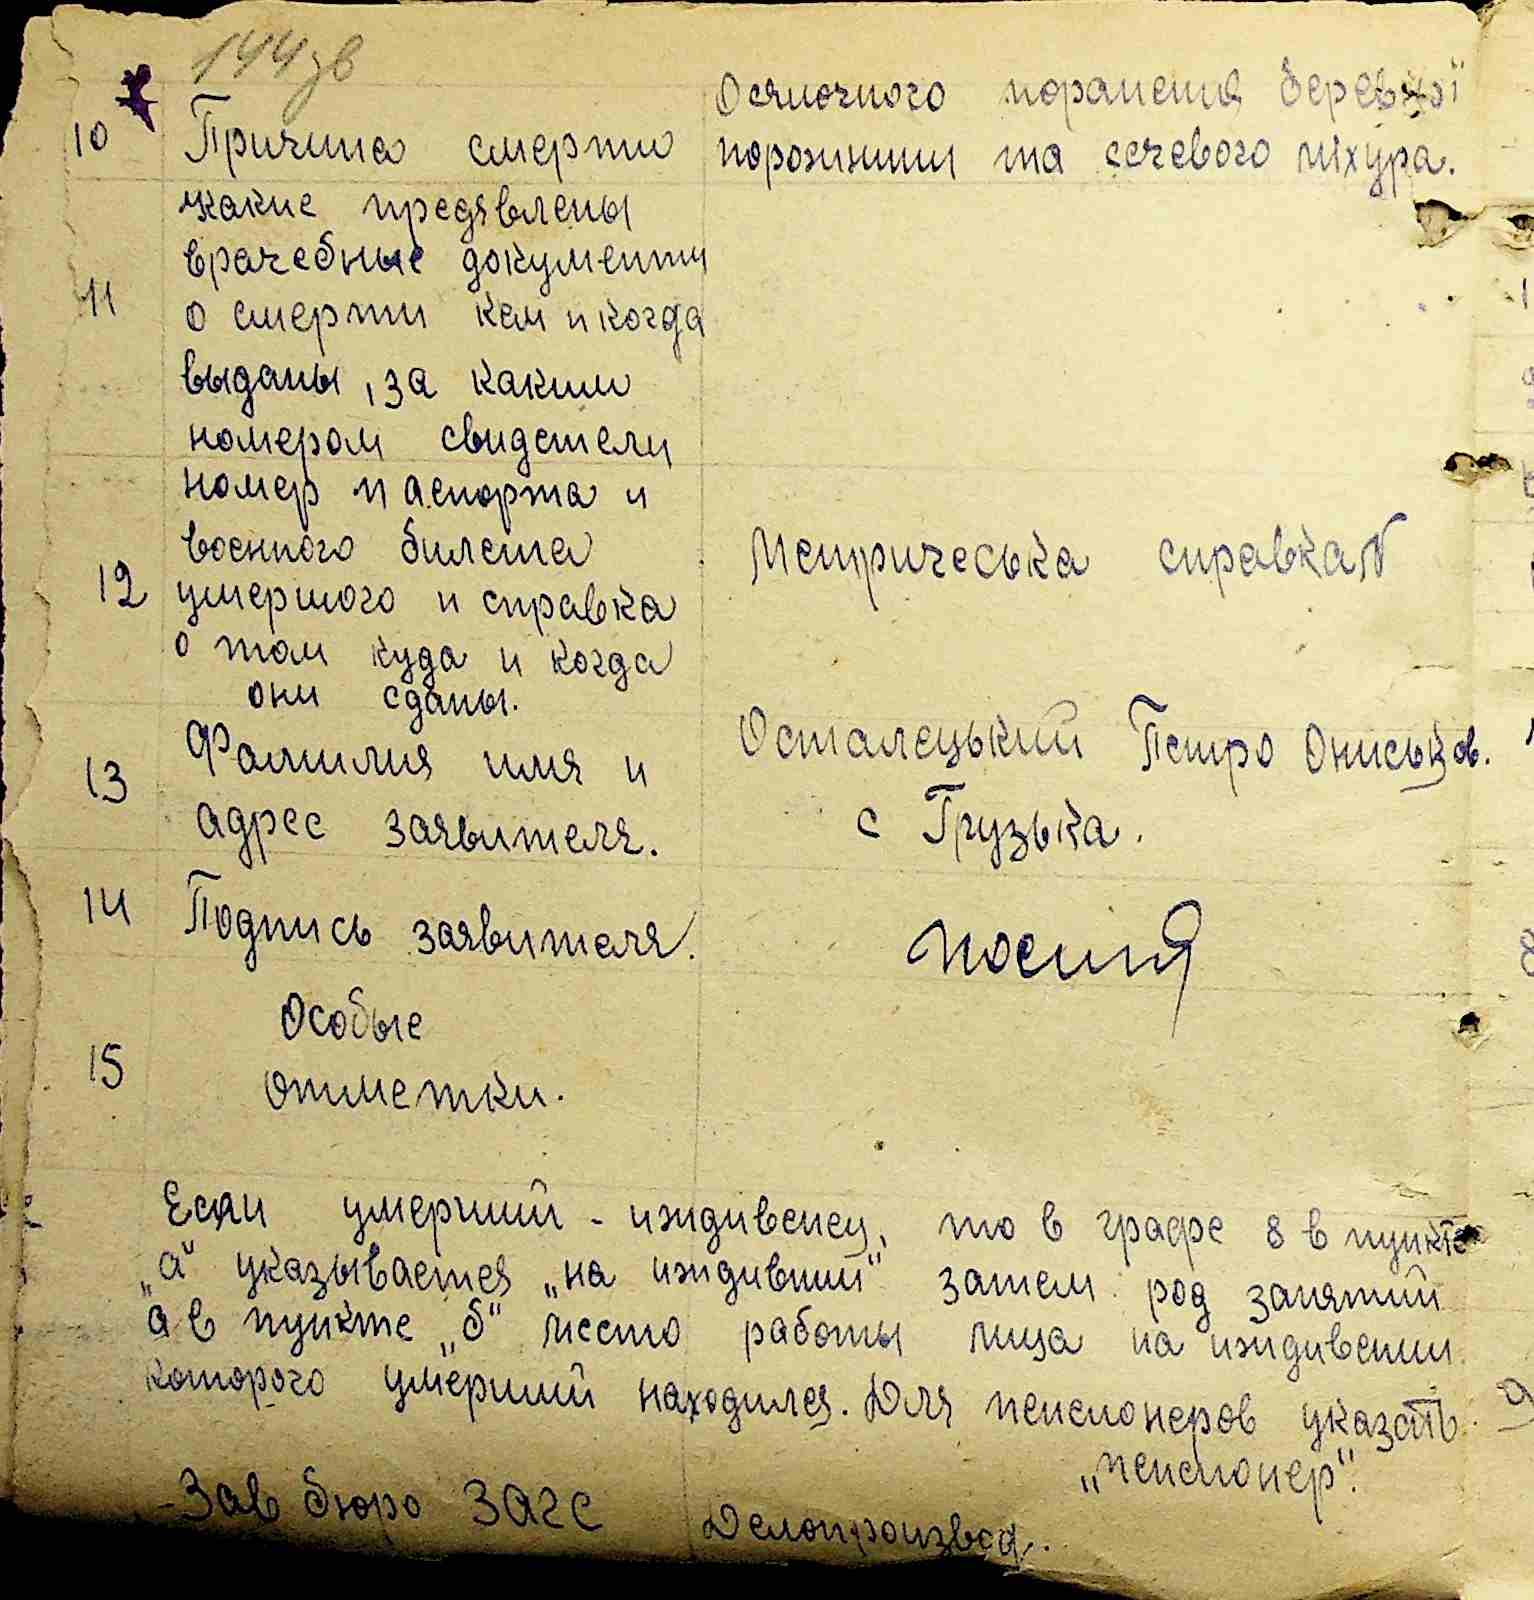 144зв
10 Причина смерти
Осколочного поранення черевної
порожнини та сечевого міхура.
11 какие предявлены
врачебные документы
о смерти кем и когда
выданы, за каким
номером свидетели
12 номер паспорта и
военного билета
умершого и справка
о том куда и когда
они сданы.
Метричеська справка
13 Фамилия имя и
адрес заявителя.
Осталецький Петро Ониськов.
с Грузька.
14 Подпись заявителя.
15 Особые
отметки.
Если умерший - иждивенец, то в графе 8 в пункте
„а" указывается „на иждивнии" затем род занятий
а в пункте „б" место работы лица на иждивении
которого умерший находился. Для пенсионеров указать
„пенсионер".
Зав бюро ЗАГС Делопроизвод.